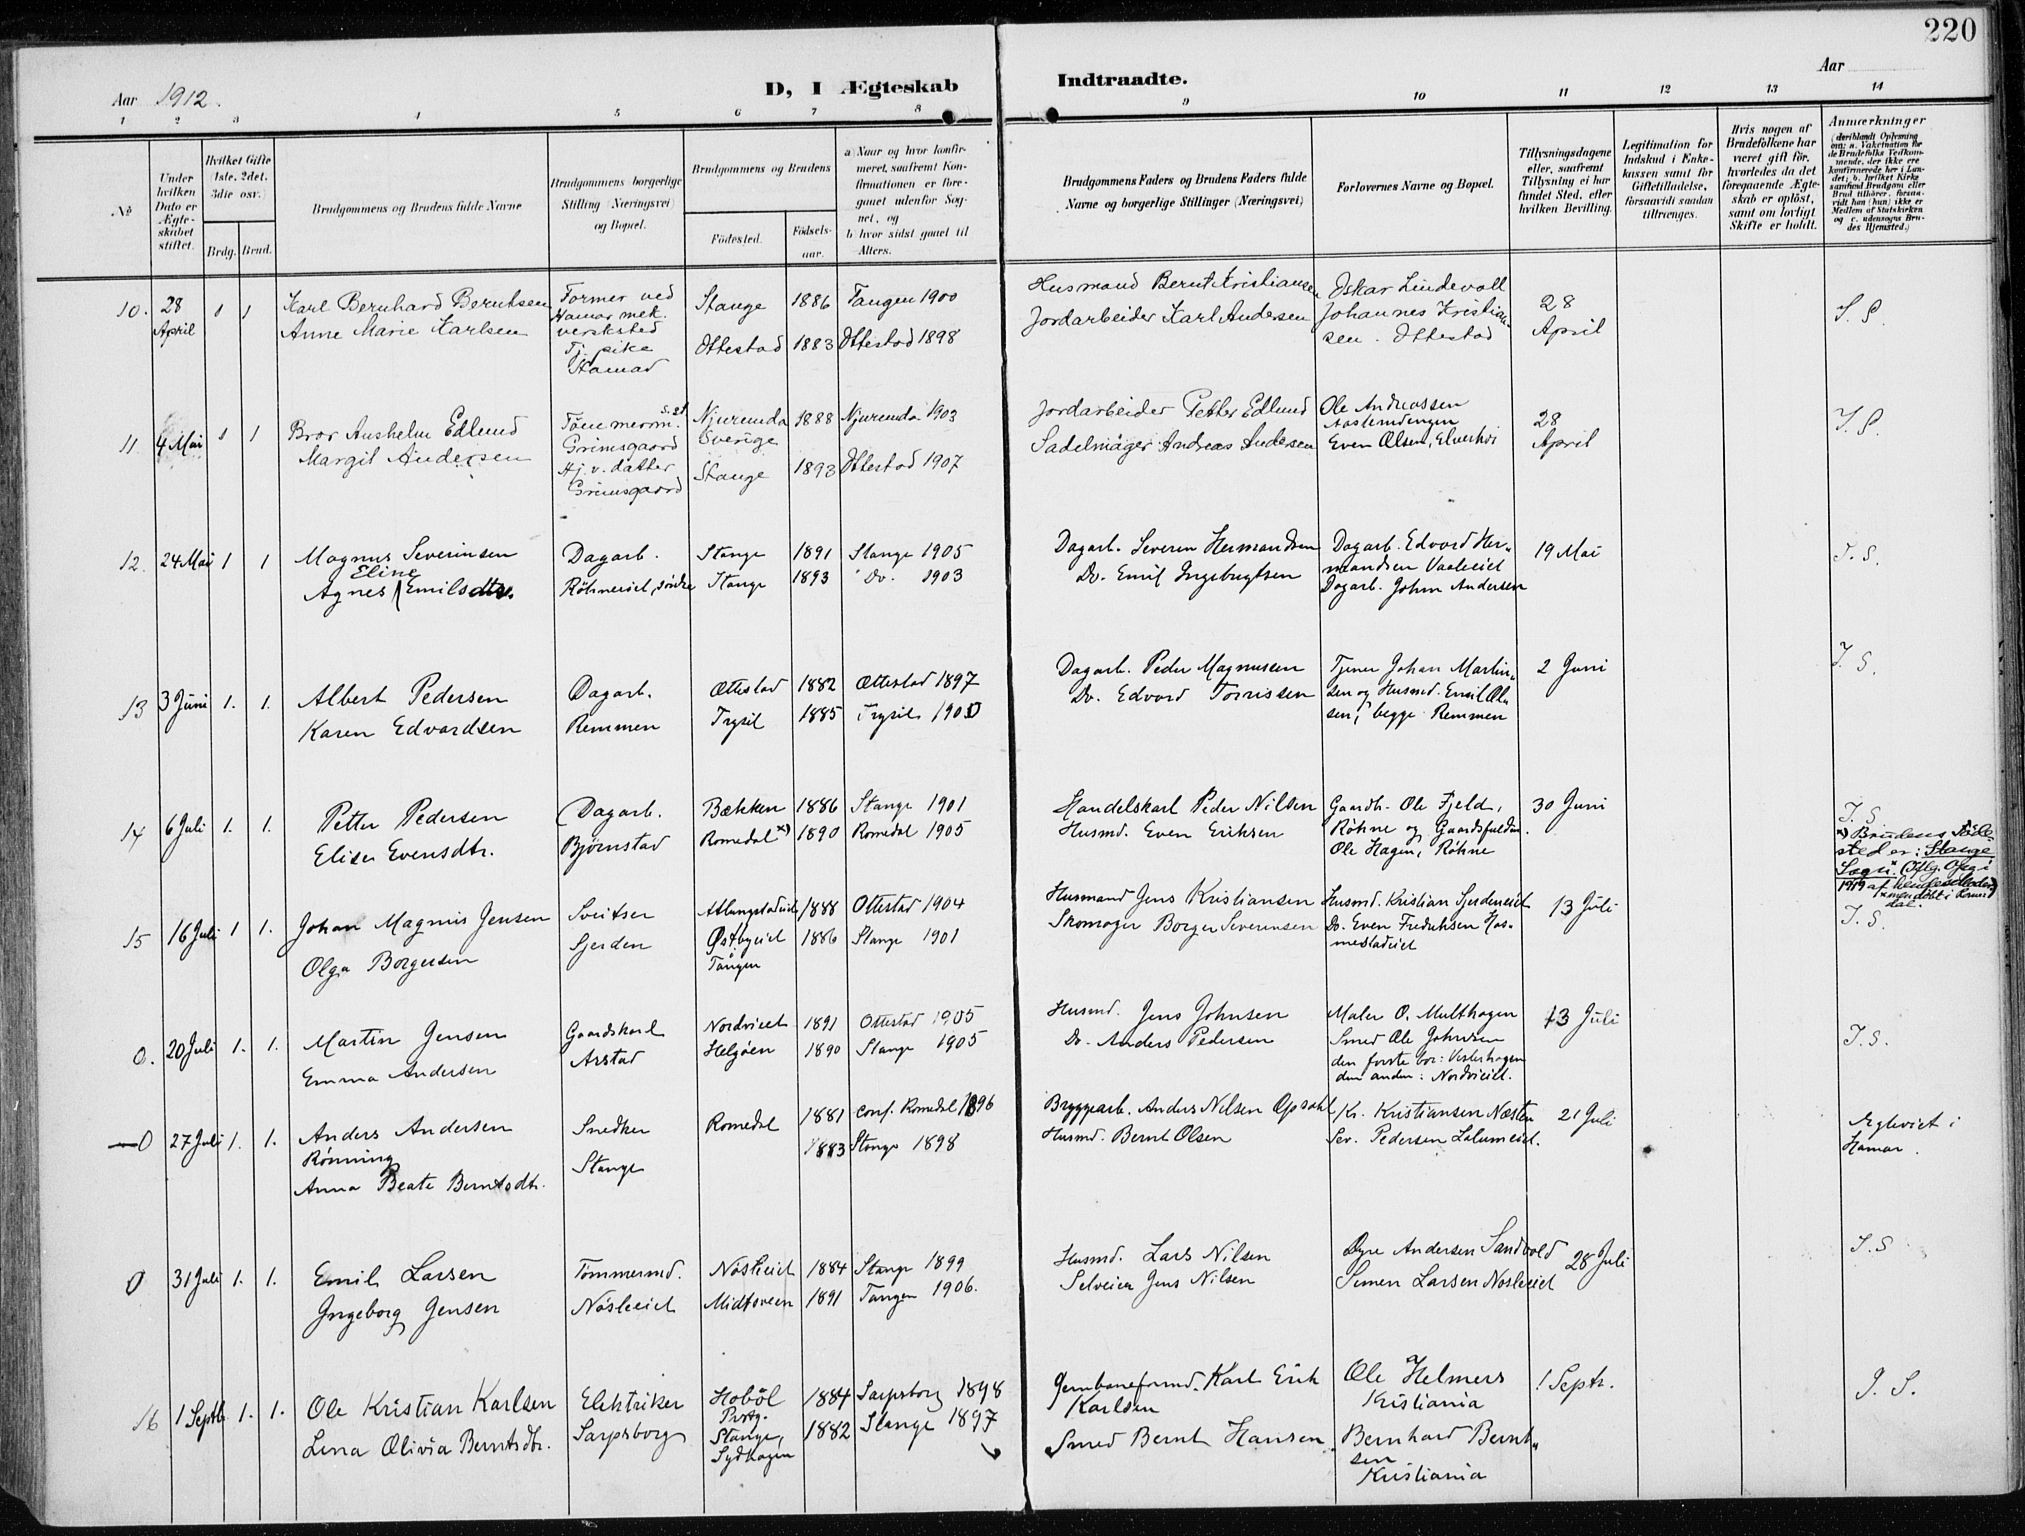 220
Aar 1912.
D, I Ægteskab Indtraadte.
Aar
1 2 3 4 5 6 7 8 9 10 11 12 13 14
No
Under hvilken Dato er Ægteskabet stiftet.
Hvilket Gifte (1ste, 2det, 3die osv.)
Brdg. Brud.
Brudgommens og Brudens fulde Navne
Brudgommens borgerlige Stilling (Næringsvei) og Bopæl.
Brudgommens og Brudens
Fødested.
Fødselsaar.
a) Naar og hvor konfirmeret, saafremt Konfirmationen er foregaaet udenfor Sognet, og
b hvor sidst gaaet til Alters.
Brudgommens Faders og Brudens Faders fulde Navne og borgerlige Stillinger (Næringsvei)
Forlovernes Navne og Bopæl.
Tillysningsdagene eller, saafremt Tillysning ei har fundet Sted, efter hvilken Bevilling.
Legitimation for Indskud i Enkekassen samt for Giftetilladelse, forsaavidt saadan tiltrænges.
Hvis nogen af Brudefolkene har været gift før, hvorledes da det foregaaende Ægteskab er opløst, samt om lovligt Skifte er holdt.
Anmærkninger
(deriblandt Oplysning om: a. Vakcination for de Brudefolks Vedkommende, der ikke ere konfirmerede her i Landet; b. hvilket Kirkesamfund Brudgom eller Brud tilhører, forsaavidt han (hun) ikke er Medlem af Statskirken og c. udensogns Brudes Hjemsted.)
10. 28 April 1 1 Karl Bernhard Berntsen Former ved Hamar mek. verksted Stange 1886 Tangen 1900 Husmand Bernt Kristiansen Oskar Lindevoll 28 April S. S.
Anne Marie Karlsen Tj. pike Hamar Ottestad 1883 Ottestad 1898 Jordarbeider Karl Andersen Johannes Kristiansen. Ottestad
11 4 Mai 1 1 Bror Anshelm Edlund Grimsgaard Njurunda Sverige 1888 Njurunda 1903 Jordarbeider Petter Edlund Ole Andreassen 28 April I. S.
Margit Andersen Hj. v. datter Grimsgaard Stange 1893 Ottestad 1907 Sadelmager Andreas Andersen Even Olsen, Elverhøi
12. 24 Mai 1 1 Magnus Severinsen Dagarb. Stange 1891 Stange 1905 Dagarb. Severin Hermandsen Dagarb. Edvard Hermandsen Vaaleiet 19 Mai I. S.
Agnes Eline Emilsdtr. Røhneeiet, søndre Stange 1893 Do. 1903 Do. Emil Ingebrigtsen Dagarb. Johan Andersen
13 3 Juni 1. 1. Albert Pedersen Dagarb. Ottestad 1882 Ottestad 1897 Dagarb. Peder Magnussen Tjener Johan Martinsen og Husmd. Emil Olsen, begge Remmen 2 Juni I. S.
Karen Edvardsen Remmen Trysil 1885 Trysil 1900 Do. Edvard Torrissen
14 6 Juli 1. 1. Petter Pedersen Dagarb. Bækken 1886 Stange 1901 Handelskarl Peder Nilsen Gaardbr. Ole Fjeld, Røhne og Gaardsfuldm. Ole Hagen, Røhne 30 Juni I. S.
Elise Evensdtr. Bjørnstad Romedal x) 1890 Romedal 1905 Husmd. Even Eriksen
x) Brudens Fødested er: Stange Sogn.
15 16 Juli 1 1. Johan Magnus Jensen Sveitser 1888 Ottestad 1904 Husmand Jens Kristiansen Husmd. Kristian Sjerdeneiet 13 Juli I. S.
Olga Borgersen Sjerden Østbyeiet Tangen 1886 Stange 1901 Skomager Borger Severinsen Do. Even Fredriksen
0. 20 Juli 1. 1. Martin Jensen Gaardskarl Nordvieiet 1891 Ottestad 1905 Husmd. Jens Johnsen Maler O. Multhagen 13 Juli I. S.
Emma Andersen Arstad Helgøen 1890 Stange 1905 Do. Anders Pedersen Smed Ole Johnsen
den første bor: Vesterhagen
den anden: Nordvieiet.
0 27 Juli 1. 1. Anders Andersen Rønning Snedker Romedal 1881 conf. Romedal 1896 Bryggearb. Anders Nilsen Opsahl Kr. Kristiansen Næsten 21 Juli Ægteviet i Hamar.
Anna Beate Berntsdtr. Stange 1883 Stange 1898 Husmd. Bernt Olsen Sev. Pedersen Lalumeiet.
0 31 Juli 1. 1. Emil Larsen Tømmermd. Nøsleeiet 1884 Stange 1899 Husmd. Lars Nilsen Dyre Andersen Sandvold 28 Juli I. S
Ingeborg Jensen Nøsleeiet Midtsveen 1891 Tangen 1906. Selveier Jens Nilsen Simen Larsen Nøsleeiet
16 1 Septb. 1. 1. Ole Kristian Karlsen Elektriker Hobøl Prstg. 1884 Sarpsborg 1898 Jernbaneformd. Karl Erik Karlsen Ole Helmers Kristiania 1 Septr. I. S.
Lina Olivia Berntsdtr. Sarpsborg Stange, Sydhagen 1882 Stange 1897 Smed Bernt Hansen Bernhard Berntsen Kristiania